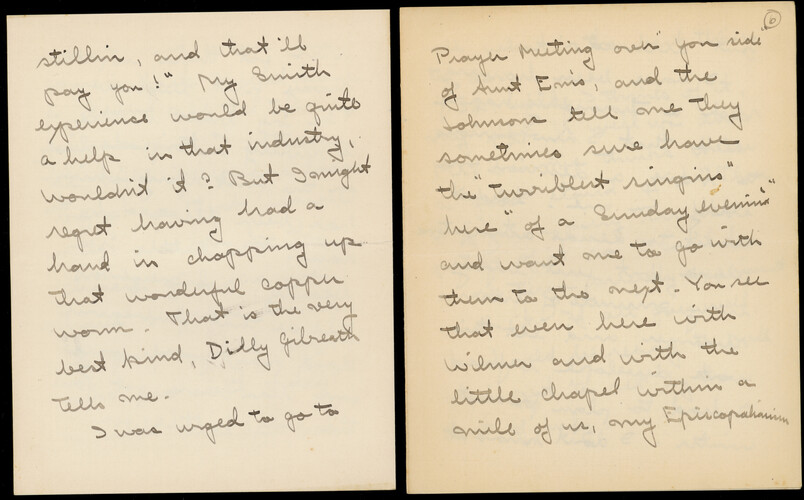 stillin, and that'll
pay you!" My Smith
experience would be quite
a help in that industry,
wouldn't it? But I might
regret having had a
hand in chopping up
that wonderful copper
worm. That is the very
best kind, Dilly Gilreath
tells me.
I was urged to go to
6
Prayer Meeting over "you side"
of Aunt Em's, and the
Johnsons tell me they
sometimes sure have
the "turriblest singin'
here" of a Sunday evenin'"
and want me to go with
them to the next. You see
that even here with
Wilmer and with the
little chapel within a
mile of us, my Episcopalianism